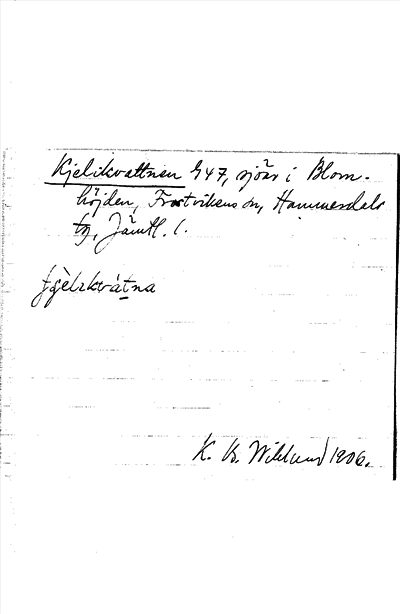 Kjelikvattnen 447, sjöar i Blom-
höjden, Frostvikens sn, Hammerdals
tg, Jämtl. l.
K. B. Wiklund 1906.